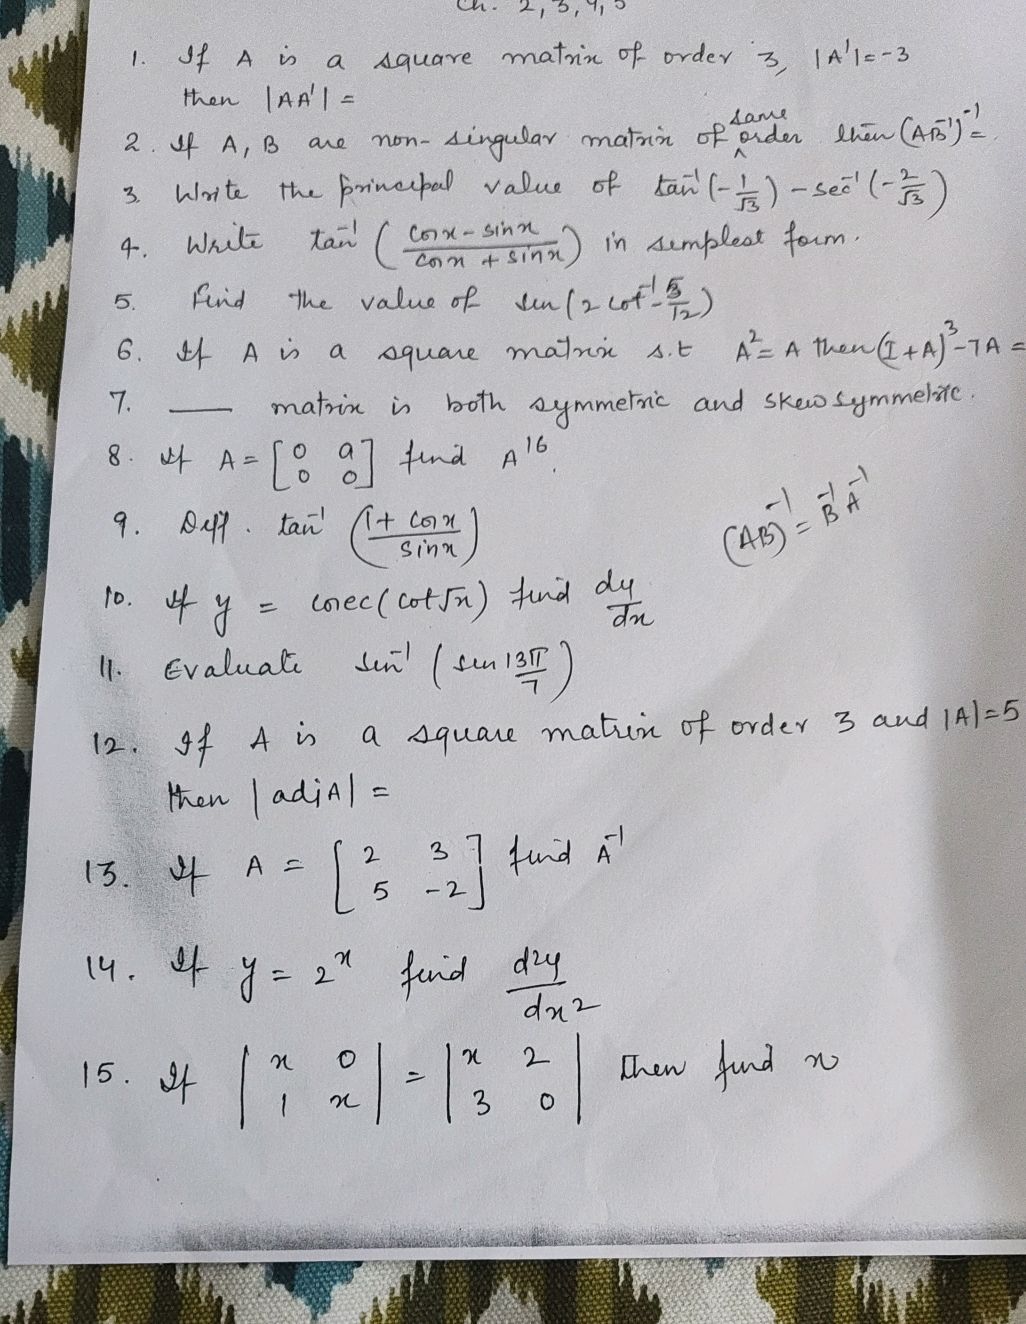 Ch. 2, 3, 4, 5
1. If A is a square matrix of order 3, |A'| = -3
then |AA'| =
2. If A, B are non-singular matrix of same order then (AB⁻¹)⁻¹ =
3. Write the principal value of tan⁻¹(-1/√3) - sec⁻¹(-2/√3)
4. Write tan⁻¹((cosx - sinx)/(cosx + sinx)) in simplest form.
5. Find the value of sin(2 cot⁻¹ -5/12)
6. If A is a square matrix s.t A² = A then (I + A)³ - 7A =
7. ___ matrix is both symmetric and skew symmetric.
8. If A = [0 a
0 0] find A¹⁶.
9. Diff. tan⁻¹((1 + cosx)/sinx)
(AB)⁻¹ = B⁻¹A⁻¹
10. If y = cosec(cot√x) find dy/dx
11. Evaluate sin⁻¹(sin 13π/7)
12. If A is a square matrix of order 3 and |A| = 5
then |adjA| =
13. If A = [2 3
5 -2] find A⁻¹
14. If y = 2ˣ find d2y/dx2
15. If |x 0
1 x| = |x 2
3 0| then find x